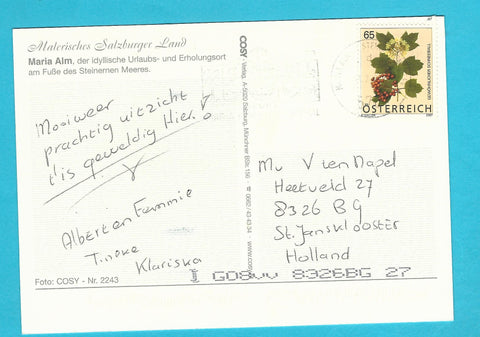 Malerisches Salzburger Land
Maria Alm, der idyllische Urlaubs- und Erholungsort
am Fuße des Steinernen Meeres.
Mooi weer
prachtig uitzicht
t'is geweldig Hier!
Albert en Fammie
Tineke
Klariska
Foto: COSY - Nr. 2243
COSY - Verlag, A-5020 Salzburg, Münchner BStr. 156 ☎ 0662/43 43 34 · www.cosy
65
ÖSTERREICH
2007
Mw V ten Napel
Heetveld 27
8326 BG
St. Jansklooster
Holland
8326BG 27